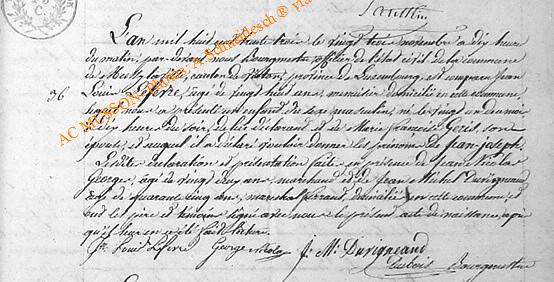 L'an mil huit cent trente trois le vingt trois novembre a dix heure
du matin, par devant nous Bourgmestre officier de l'état civil de la commune
de canton de province de Luxembourg est comparu Jean
36 Louis Lefevre, agé de vingt huit ans, menuisier domicilié en cette commune
lequel nous a présenté un enfant du sexe masculin, né le vingt un du mois
a dix heures du soir, de lui déclarant et de Marie Françoise son
épouse, et auquel il a déclaré vouloir donner les prénoms de Jean-joseph.
Lesdite déclaration et présentation faite en présence de Jean Nicolas
George, agé de vingt ans, marchand et de Jean Michel Duvigneaud
agé de quarante cinq ans, marechal ferrant, domicilié en cette commune et
ont les père et témoins signé avec nous le présent acte de naissance, après
qu'il leur en a été fait lecture.
Jn Louis Lefevre George nikolas J. Mi. Duvigneaud
Dubois Bourgmestre
AC MUSSON